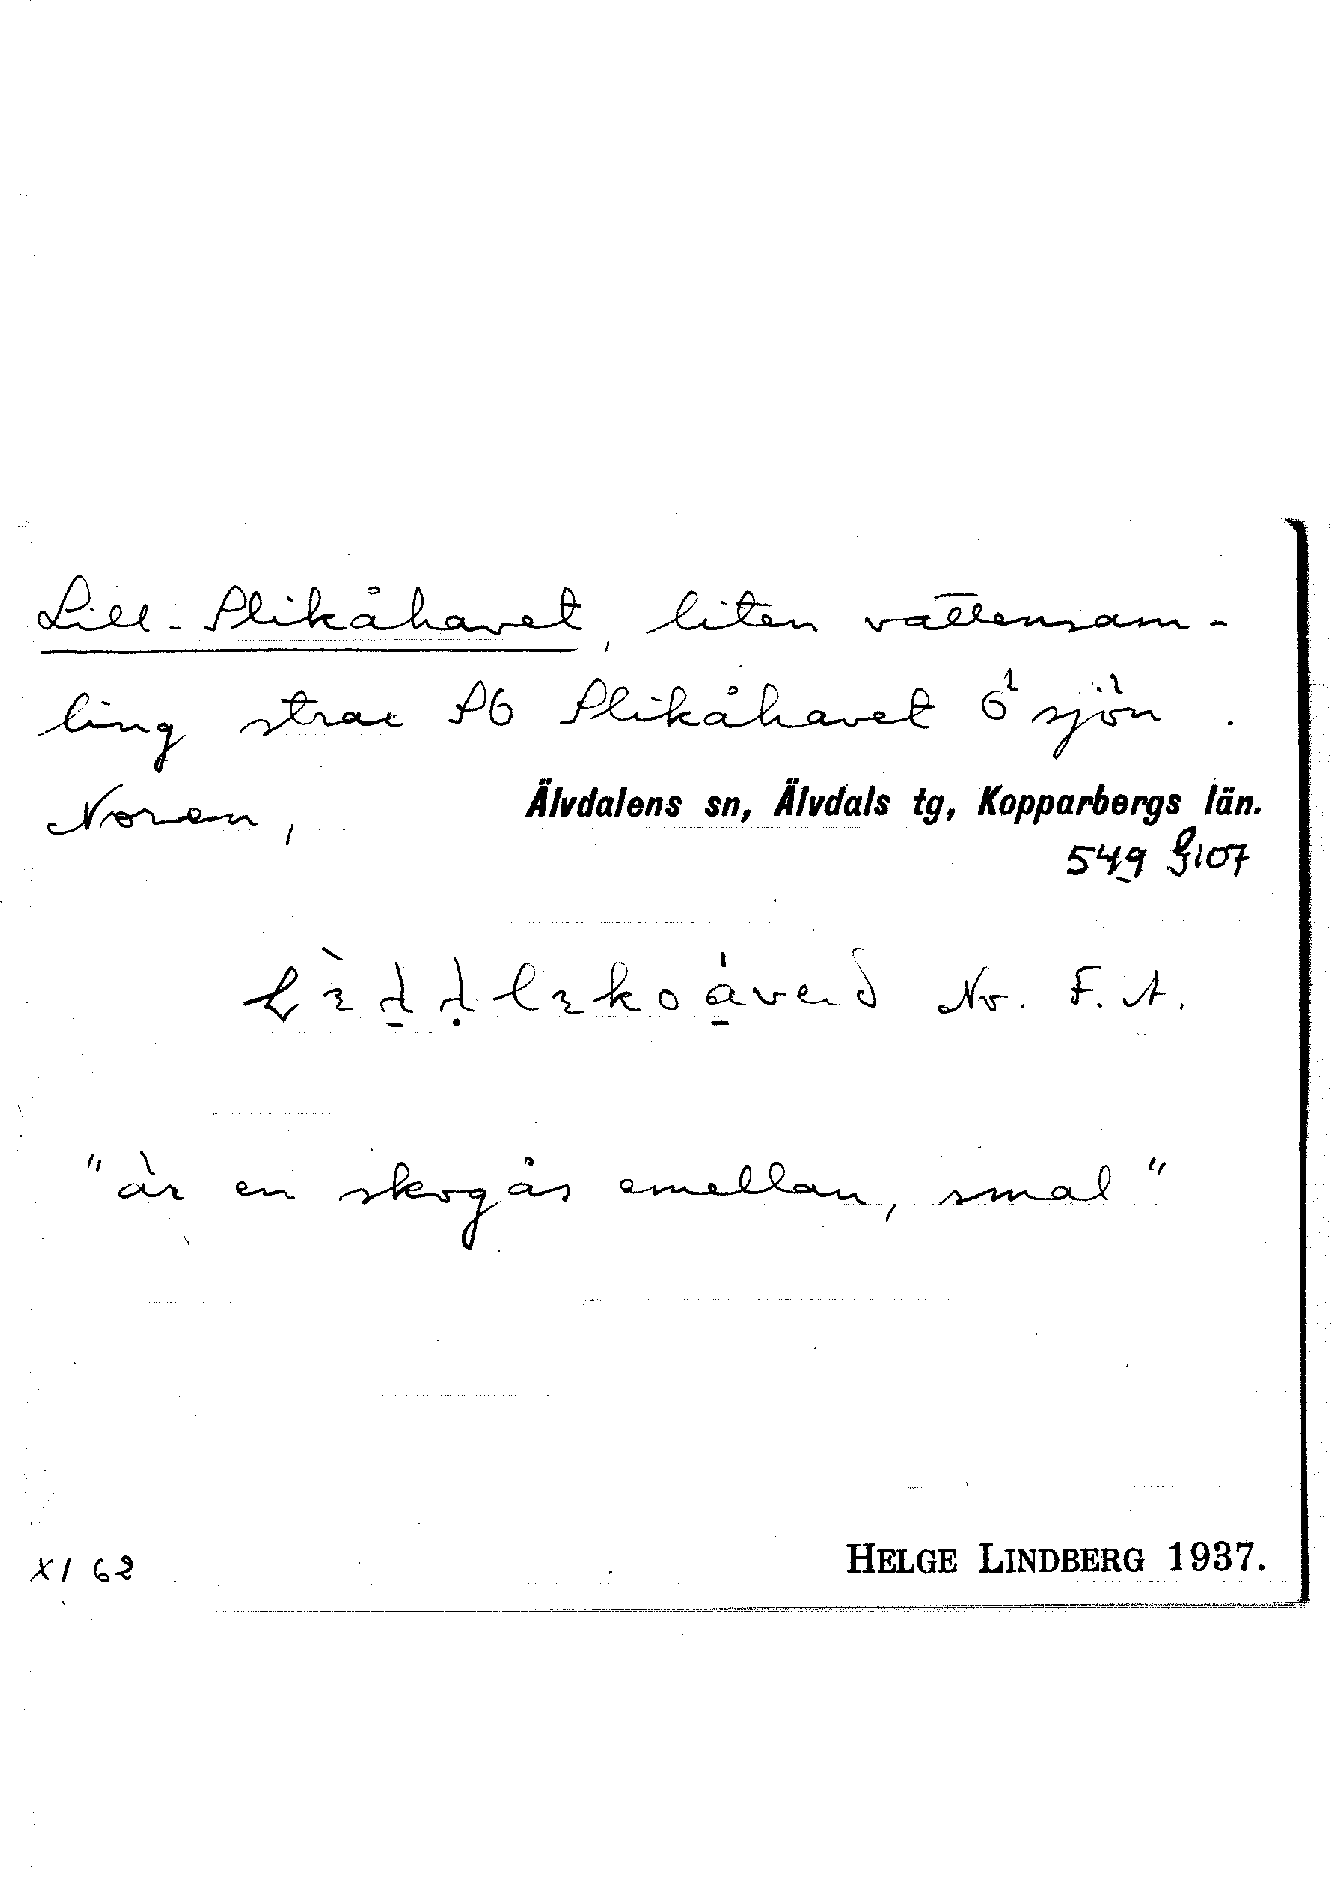 Lill-Slikåhavet, liten vattensam-
ling strax SO Slikåhavet 6² sjön.
Noren, Älvdalens sn, Älvdals tg, Kopparbergs län.
549 G107
No. F. A.
"är en skogås emellan, smal"
XI 62 HELGE LINDBERG 1937.